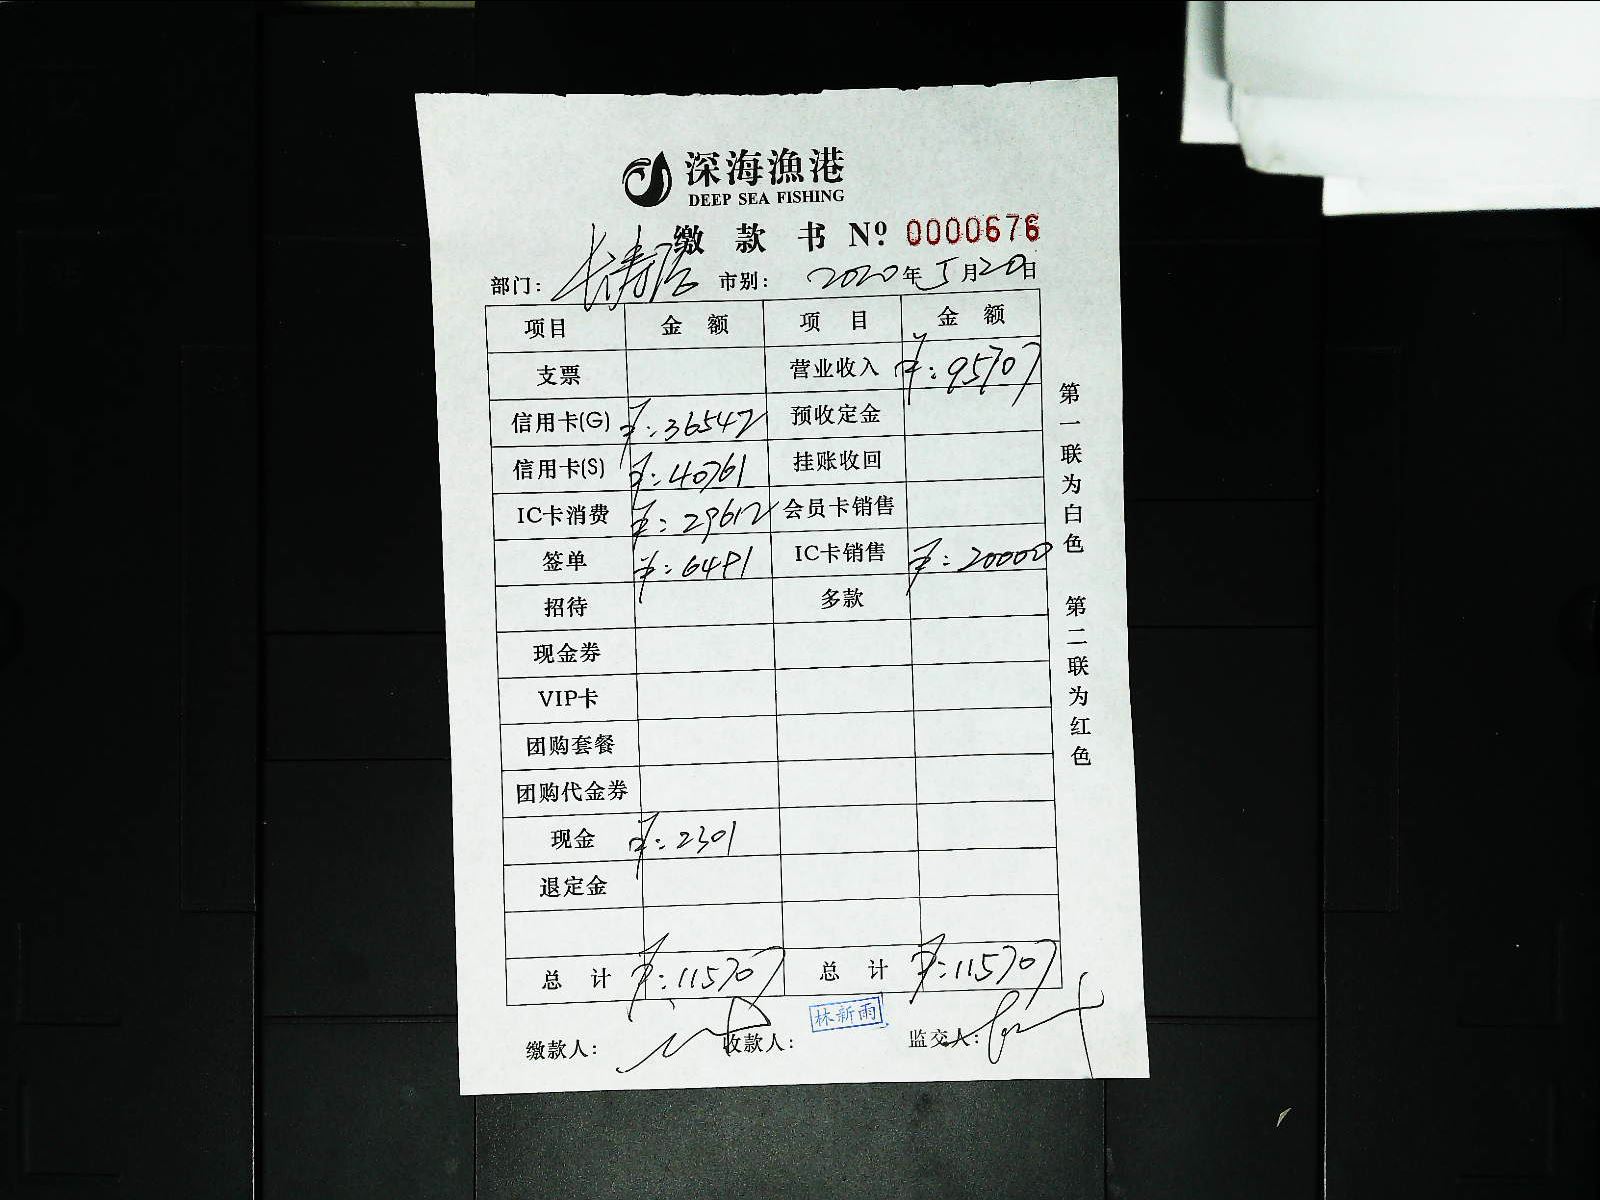 深海漁港
DEEP SEA FISHING
缴款书 Nº 0000676
部门：长寿店 市别： 2020年5月20日
项目 金额 项目 金额
支票 营业收入 ¥：95707
信用卡(G) ¥：36542 预收定金
信用卡(S) ¥：40761 挂账收回
IC卡消费 ¥：29612 会员卡销售
签单 ¥：6491 IC卡销售 ¥：20000
招待 多款
现金券
VIP卡
团购套餐
团购代金券
现金 ¥：2301
退定金
总计 ¥：115707 总计 ¥：115707
缴款人： 收款人： 林新雨 监交人：
第一联为白色 第二联为红色